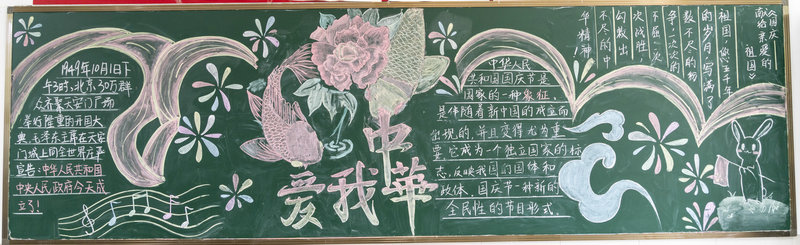 1949年10月1日下
午3时,北京30万群
众齐聚天安门广场
举行隆重的开国大
典,毛泽东主席在天安
门城上向全世界庄严
宣告:中华人民共和国
中央人民政府今天成
立了!
爱我中華
中华人民
共和国国庆节是
国家的一种象征,
是伴随着新中国的成立而
出现的,并且变得尤为重
要。它成为一个独立国家的标
志,反映我国的国体和
政体。国庆节一种新的、
全民性的节日形式。
《国庆
献给亲爱的
祖国》
祖国,您五千年
的岁月,写满了
数不尽的抗
争,一次次的
不屈,一次
次战胜,
勾数出
不尽的中
华精神!